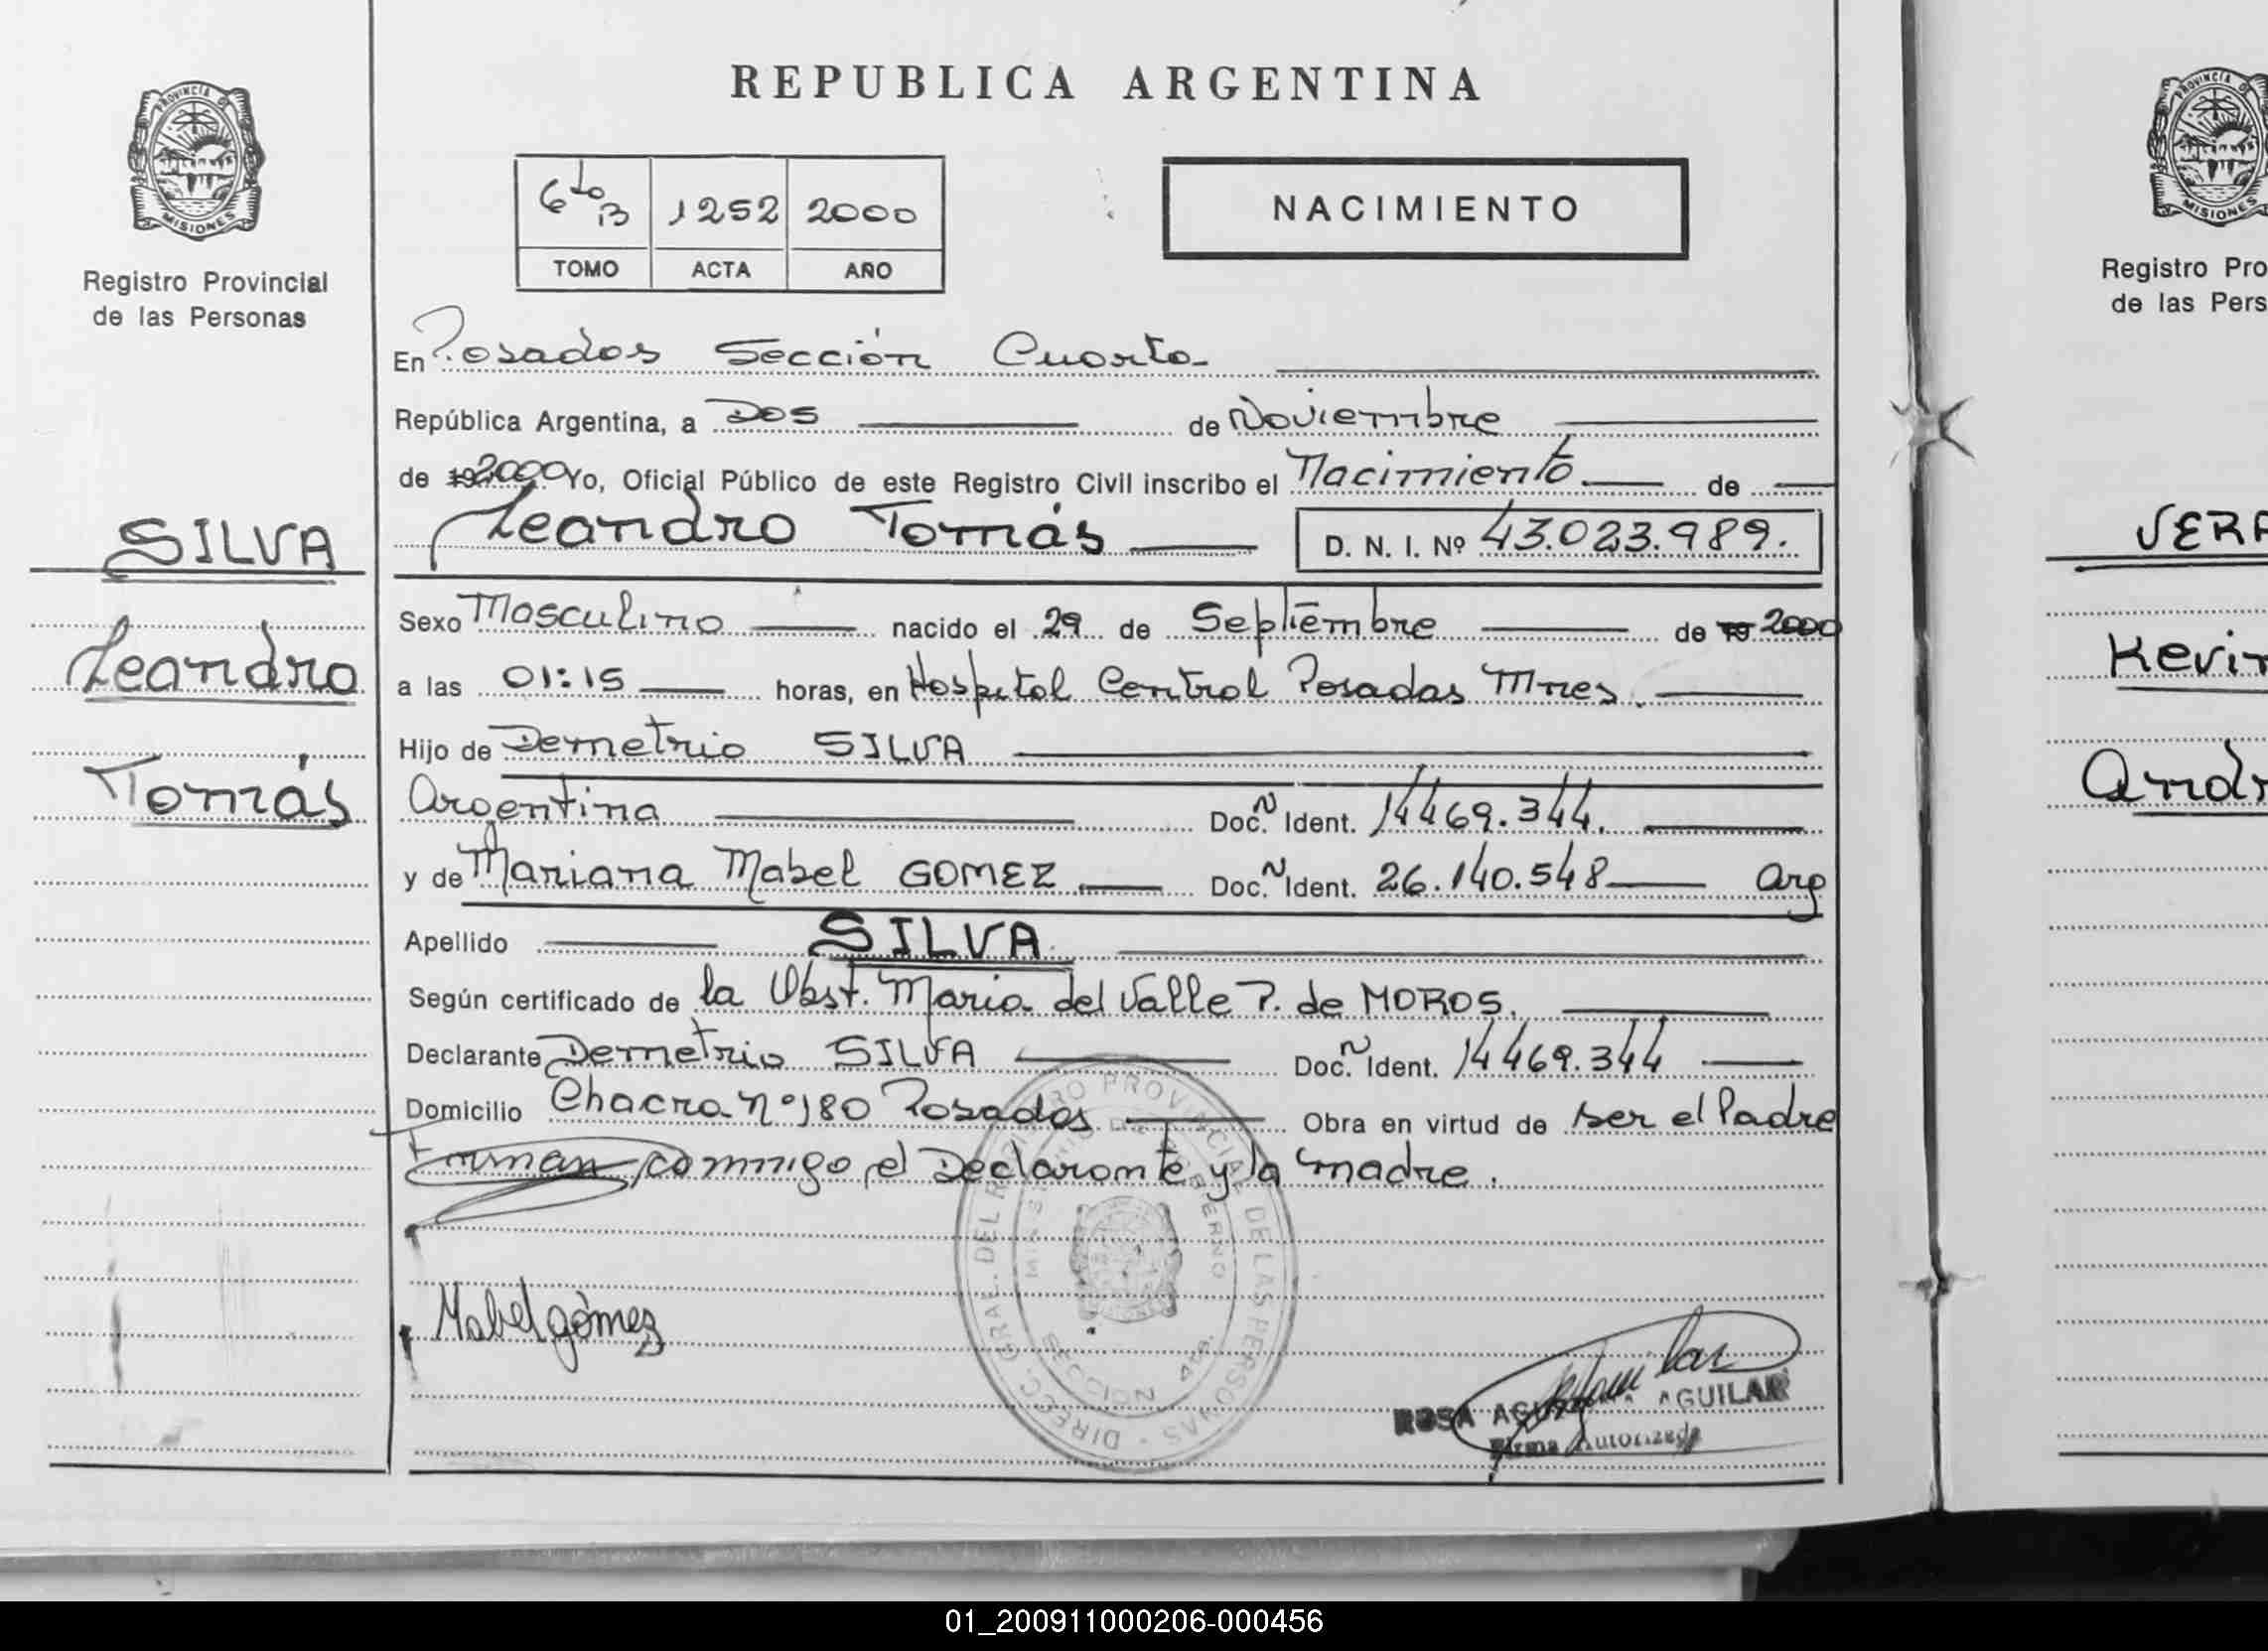 PROVINCIA DE
MISIONES
Registro Provincial
de las Personas
SILVA
Leandro
Tomás
REPUBLICA ARGENTINA
6to B 1252 2000
TOMO ACTA AÑO
NACIMIENTO
En Posadas Sección Cuarta
República Argentina, a Dos de Noviembre
de 19 2000 Yo, Oficial Público de este Registro Civil inscribo el Nacimiento de
Leandro Tomás D. N. I. Nº 43.023.989.
Sexo Masculino nacido el 29 de Septiembre de 19 2000
a las 01:15 horas, en Hospital Central Posadas Mnes.
Hijo de Demetrio SILVA
Argentina Doc. N Ident. 14469.344.
y de Mariana Mabel GOMEZ Doc. N Ident. 26.140.548 Arg
Apellido SILVA
Según certificado de la Obst. Maria del Valle P. de MOROS.
Declarante Demetrio SILVA Doc. N Ident. 14469.344
Domicilio Chacra nº 180 Posadas Obra en virtud de ser el Padre
Firman conmigo el Declarante y la madre.
DIRECC. GRAL. DEL REGISTRO PROVINCIAL DE LAS PERSONAS
MINISTERIO DE GOBIERNO
SECCION 4ta.
Mabel gómez
ROSA AGUILAR
Firma Autorizada
PROVINCIA
MISIONES
Registro Pro
de las Pers
VERA
Kevin
Andr
01_200911000206-000456